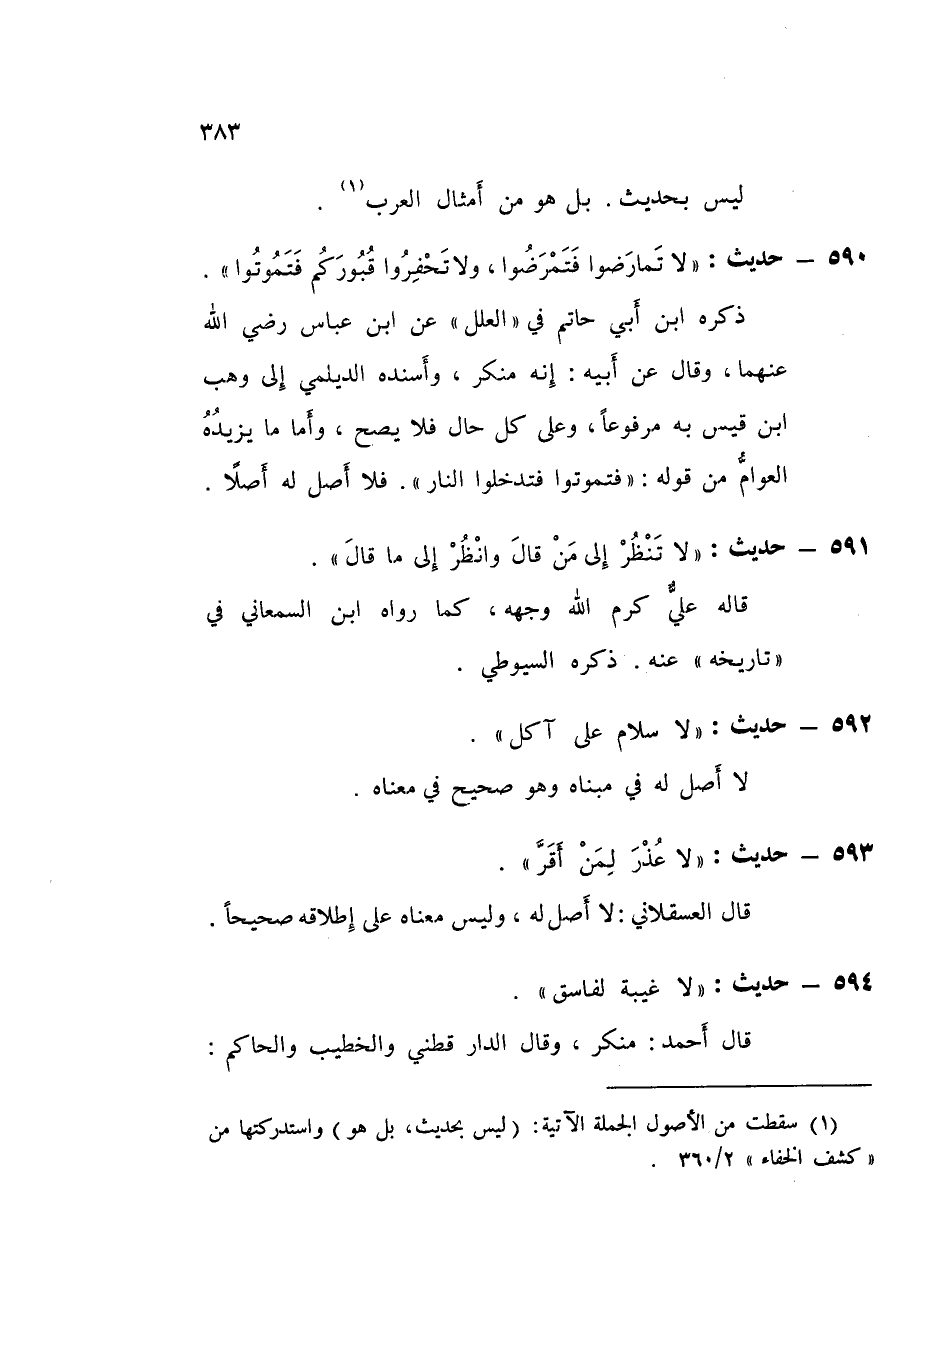 ٣٨٣
ليس بحديث . بل هو من أَمثال العرب(١) .
٥٩٠ – حديث : « لا تَمارَضوا فَتَمْرَضُوا ، ولا تَحْفِرُوا قُبُورَكُم فَتَمُوتُوا » .
ذكره ابن أَبي حاتم في « العلل » عن ابن عباس رضي الله
عنهما ، وقال عن أَبيه : إِنه منكر ، وأَسنده الديلمي إِلى وهب
ابن قيس به مرفوعاً ، وعلى كل حال فلا يصح ، وأَما ما يزيدُهُ
العوامُّ من قوله : « فتموتوا فتدخلوا النار » . فلا أَصل له أَصلًا .
٥٩١ – حديث : « لا تَنْظُرْ إِلى مَنْ قالَ وانْظُرْ إِلى ما قالَ » .
قاله عليٌّ كرم الله وجهه ، كما رواه ابن السمعاني في
« تاريخه » عنه . ذكره السيوطي .
٥٩٢ – حديث : « لا سلام على آكل » .
لا أَصل له في مبناه وهو صحيح في معناه .
٥٩٣ – حديث : « لا عُذْرَ لِمَنْ أَقَرَّ » .
قال العسقلاني : لا أَصل له ، وليس معناه على إِطلاقه صحيحاً .
٥٩٤ – حديث : « لا غيبة لفاسق » .
قال أَحمد : منكر ، وقال الدار قطني والخطيب والحاكم :
(١) سقطت من الأصول الجملة الآتية : ( ليس بحديث ، بل هو ) واستدركتها من
« كشف الخفاء » ٣٦٠/٢ .